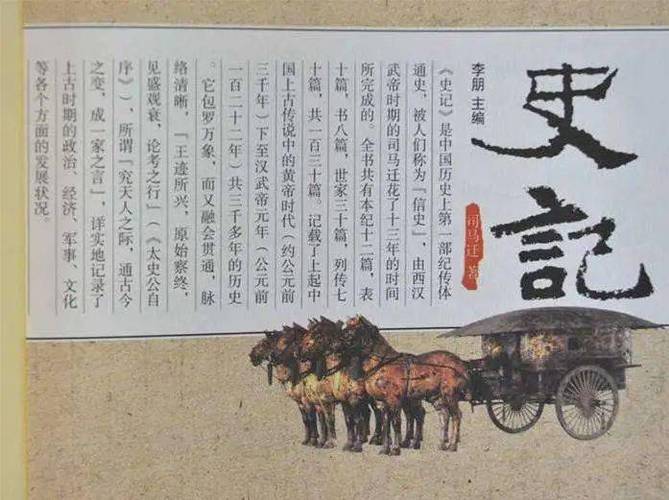 史記
司马迁 著
李朋 主编
《史记》是中国历史上第一部纪传体
通史，被人们称为『信史』，由西汉
武帝时期的司马迁花了十三年的时间
所完成的。全书共有本纪十二篇，表
十篇，书八篇，世家三十篇，列传七
十篇，共一百三十篇。记载了上起中
国上古传说中的黄帝时代（约公元前
三千年）下至汉武帝元年（公元前
一百二十二年）共三千多年的历史
。它包罗万象，而又融会贯通，脉
络清晰，『王迹所兴，原始察终，
见盛观衰，论考之行』（《太史公自
序》），所谓『究天人之际，通古今
之变，成一家之言』，详实地记录了
上古时期的政治、经济、军事、文化
等各个方面的发展状况。